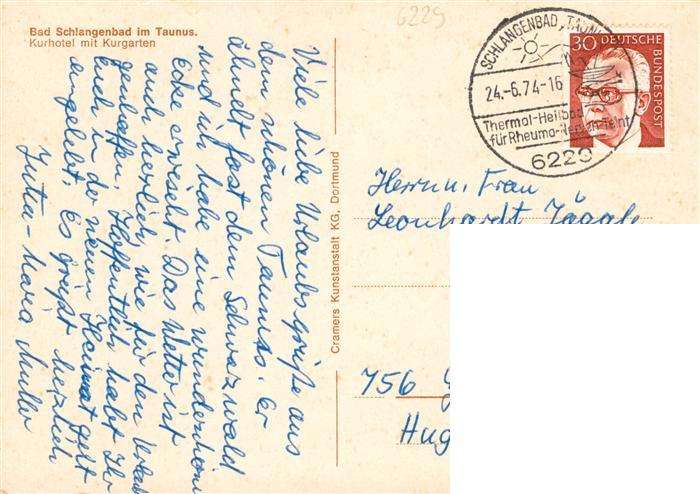 6229
Bad Schlangenbad im Taunus.
Kurhotel mit Kurgarten
Viele liebe Urlaubsgrüße aus
dem schönen Taunus. Er
ähnelt fast dem Schwarzwald
und ich habe eine wunderschöne
Ecke erwischt. Das Wetter ist
auch herrlich, wie für den Urlaub
geschaffen. Hoffentlich habt Ihr
Euch in der neuen Heimat gut
eingelebt. Es grüßt herzlich
Jutta-Maria
Cramers Kunstanstalt KG, Dortmund
SCHLANGENBAD, TAUNUS
24.-6.74-16
Thermal-Heilbad
für Rheuma-Nerven-Teint
6229
30 DEUTSCHE
BUNDESPOST
Herrn u. Frau
Leonhardt Jäggle
756 G
Hug